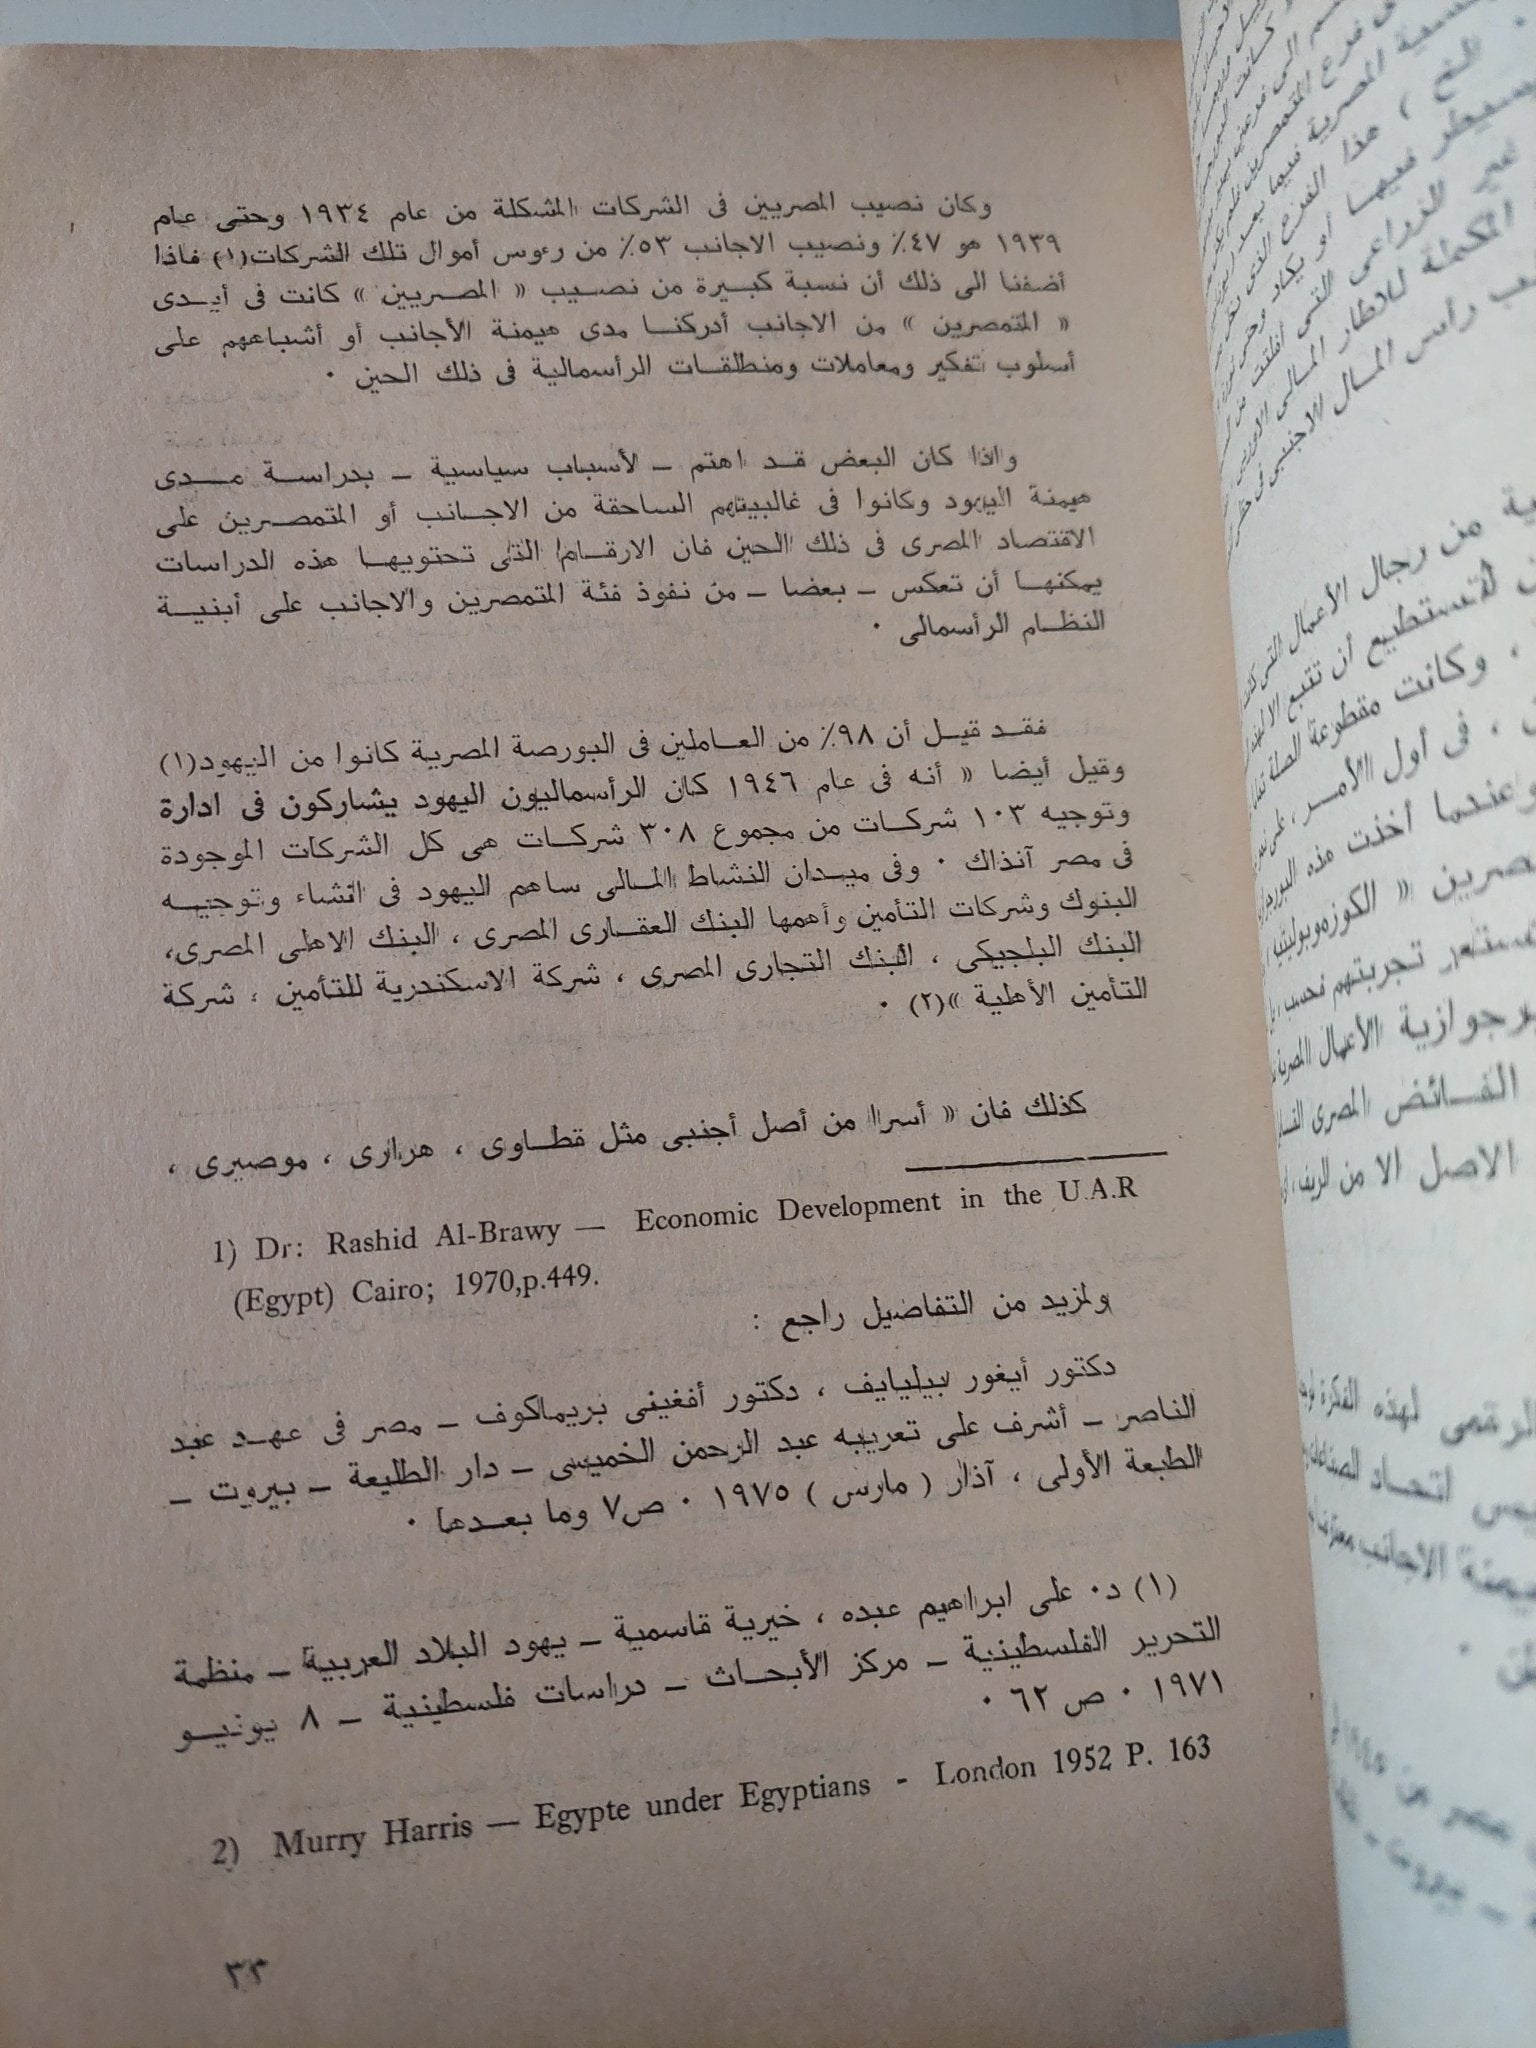 وكان نصيب المصريين فى الشركات المشكلة من عام ١٩٣٤ وحتى عام
١٩٣٩ هو ٤٧٪ ونصيب الاجانب ٥٣٪ من رءوس أموال تلك الشركات(١) فاذا
أضفنا الى ذلك أن نسبة كبيرة من نصيب « المصريين » كانت فى أيدى
« المتمصرين » من الاجانب أدركنا مدى هيمنة الأجانب أو أشباههم على
أسلوب تفكير ومعاملات ومنطلقات الرأسمالية فى ذلك الحين ٠
واذا كان البعض قد اهتم ــ لأسباب سياسية ــ بدراسة مدى
هيمنة اليهود وكانوا فى غالبيتهم الساحقة من الاجانب أو المتمصرين على
الاقتصاد المصرى فى ذلك الحين فان الارقام التى تحتويها هذه الدراسات
يمكنها أن تعكس ــ بعضا ــ من نفوذ فئة المتمصرين والاجانب على أبنية
النظام الرأسمالى ٠
فقد قيل أن ٩٨٪ من العاملين فى البورصة المصرية كانوا من اليهود(١)
وقيل أيضا « أنه فى عام ١٩٤٦ كان الرأسماليون اليهود يشاركون فى ادارة
وتوجيه ١٠٣ شركات من مجموع ٣٠٨ شركات هى كل الشركات الموجودة
فى مصر آنذاك ٠ وفى ميدان النشاط المالى ساهم اليهود فى انشاء وتوجيه
البنوك وشركات التأمين وأهمها البنك العقارى المصرى ، البنك الاهلى المصرى،
البنك البلجيكى ، البنك التجارى المصرى ، شركة الاسكندرية للتأمين ، شركة
التأمين الأهلية »(٢) ٠
كذلك فان « أسرا من أصل أجنبى مثل قطاوى ، هرارى ، موصيرى ،
1) Dr: Rashid Al-Brawy — Economic Development in the U.A.R
(Egypt) Cairo; 1970,p.449.
ولمزيد من التفاصيل راجع :
دكتور أيغور بيليايف ، دكتور أفغينى بريماكوف ــ مصر فى عهد عبد
الناصر ــ أشرف على تعريبه عبد الرحمن الخميسى ــ دار الطليعة ــ بيروت ــ
الطبعة الأولى ، آذار ( مارس ) ١٩٧٥ ٠ ص٧ وما بعدها ٠
(١) د٠ على ابراهيم عبده ، خيرية قاسمية ــ يهود البلاد العربية ــ منظمة
التحرير الفلسطينية ــ مركز الأبحاث ــ دراسات فلسطينية ــ ٨ يونيو
١٩٧١ ٠ ص ٦٢ ٠
2) Murry Harris — Egypte under Egyptians - London 1952 P. 163
٣٣
ية من رجال الأعمال التى
تستطيع أن تتبع
، وكانت مقطوعة الصلة
، فى أول الأمر ، على
وعندما أخذت هذه
« الكوزموبوليتية
تجربتهم فحسب ،
الأعمال المصرية
الفائض المصرى
الاصل الا من الريف ،
لهذه الفكرة
اتحاد الصناعات